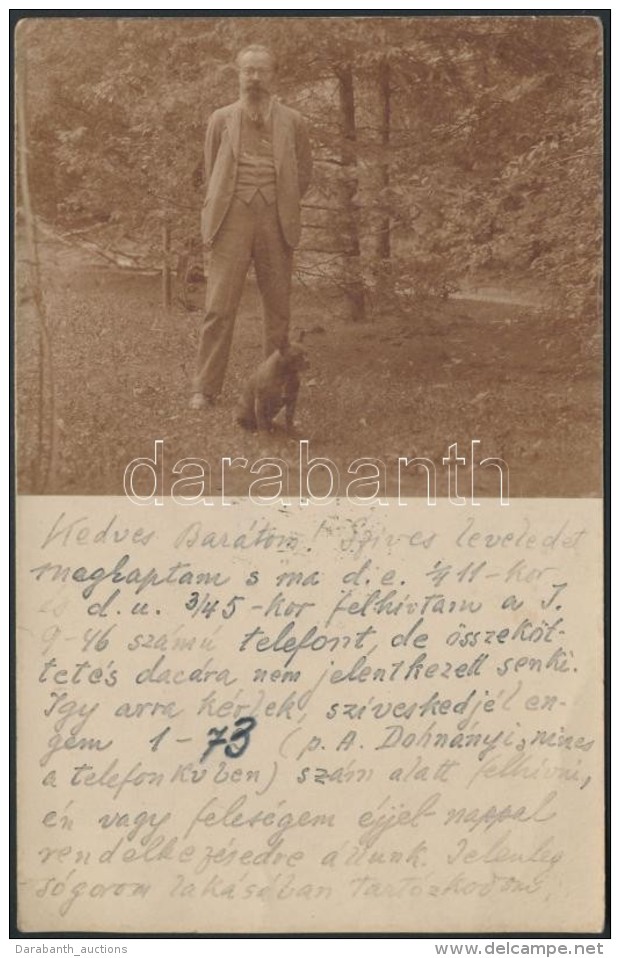 darabanth
Kedves Barátom! Szives leveledet
megkaptam s ma d.e. 1/4 11-kor
és d.u. 3/4 5-kor felhivtam a J.
9-46 számú telefont, de összeköt-
tetés dacára nem jelentkezett senki.
Igy arra kérlek, sziveskedjél en-
gem 1-73 (p. A. Dohnányi, nincs
a telefonkvben) szám alatt felhivni,
én vagy feleségem éjjel-nappal
rendelkezésedre állunk. Jelenleg
sógorom lakásában tartózkodom.
Darabanth_auctions
www.delcampe.net